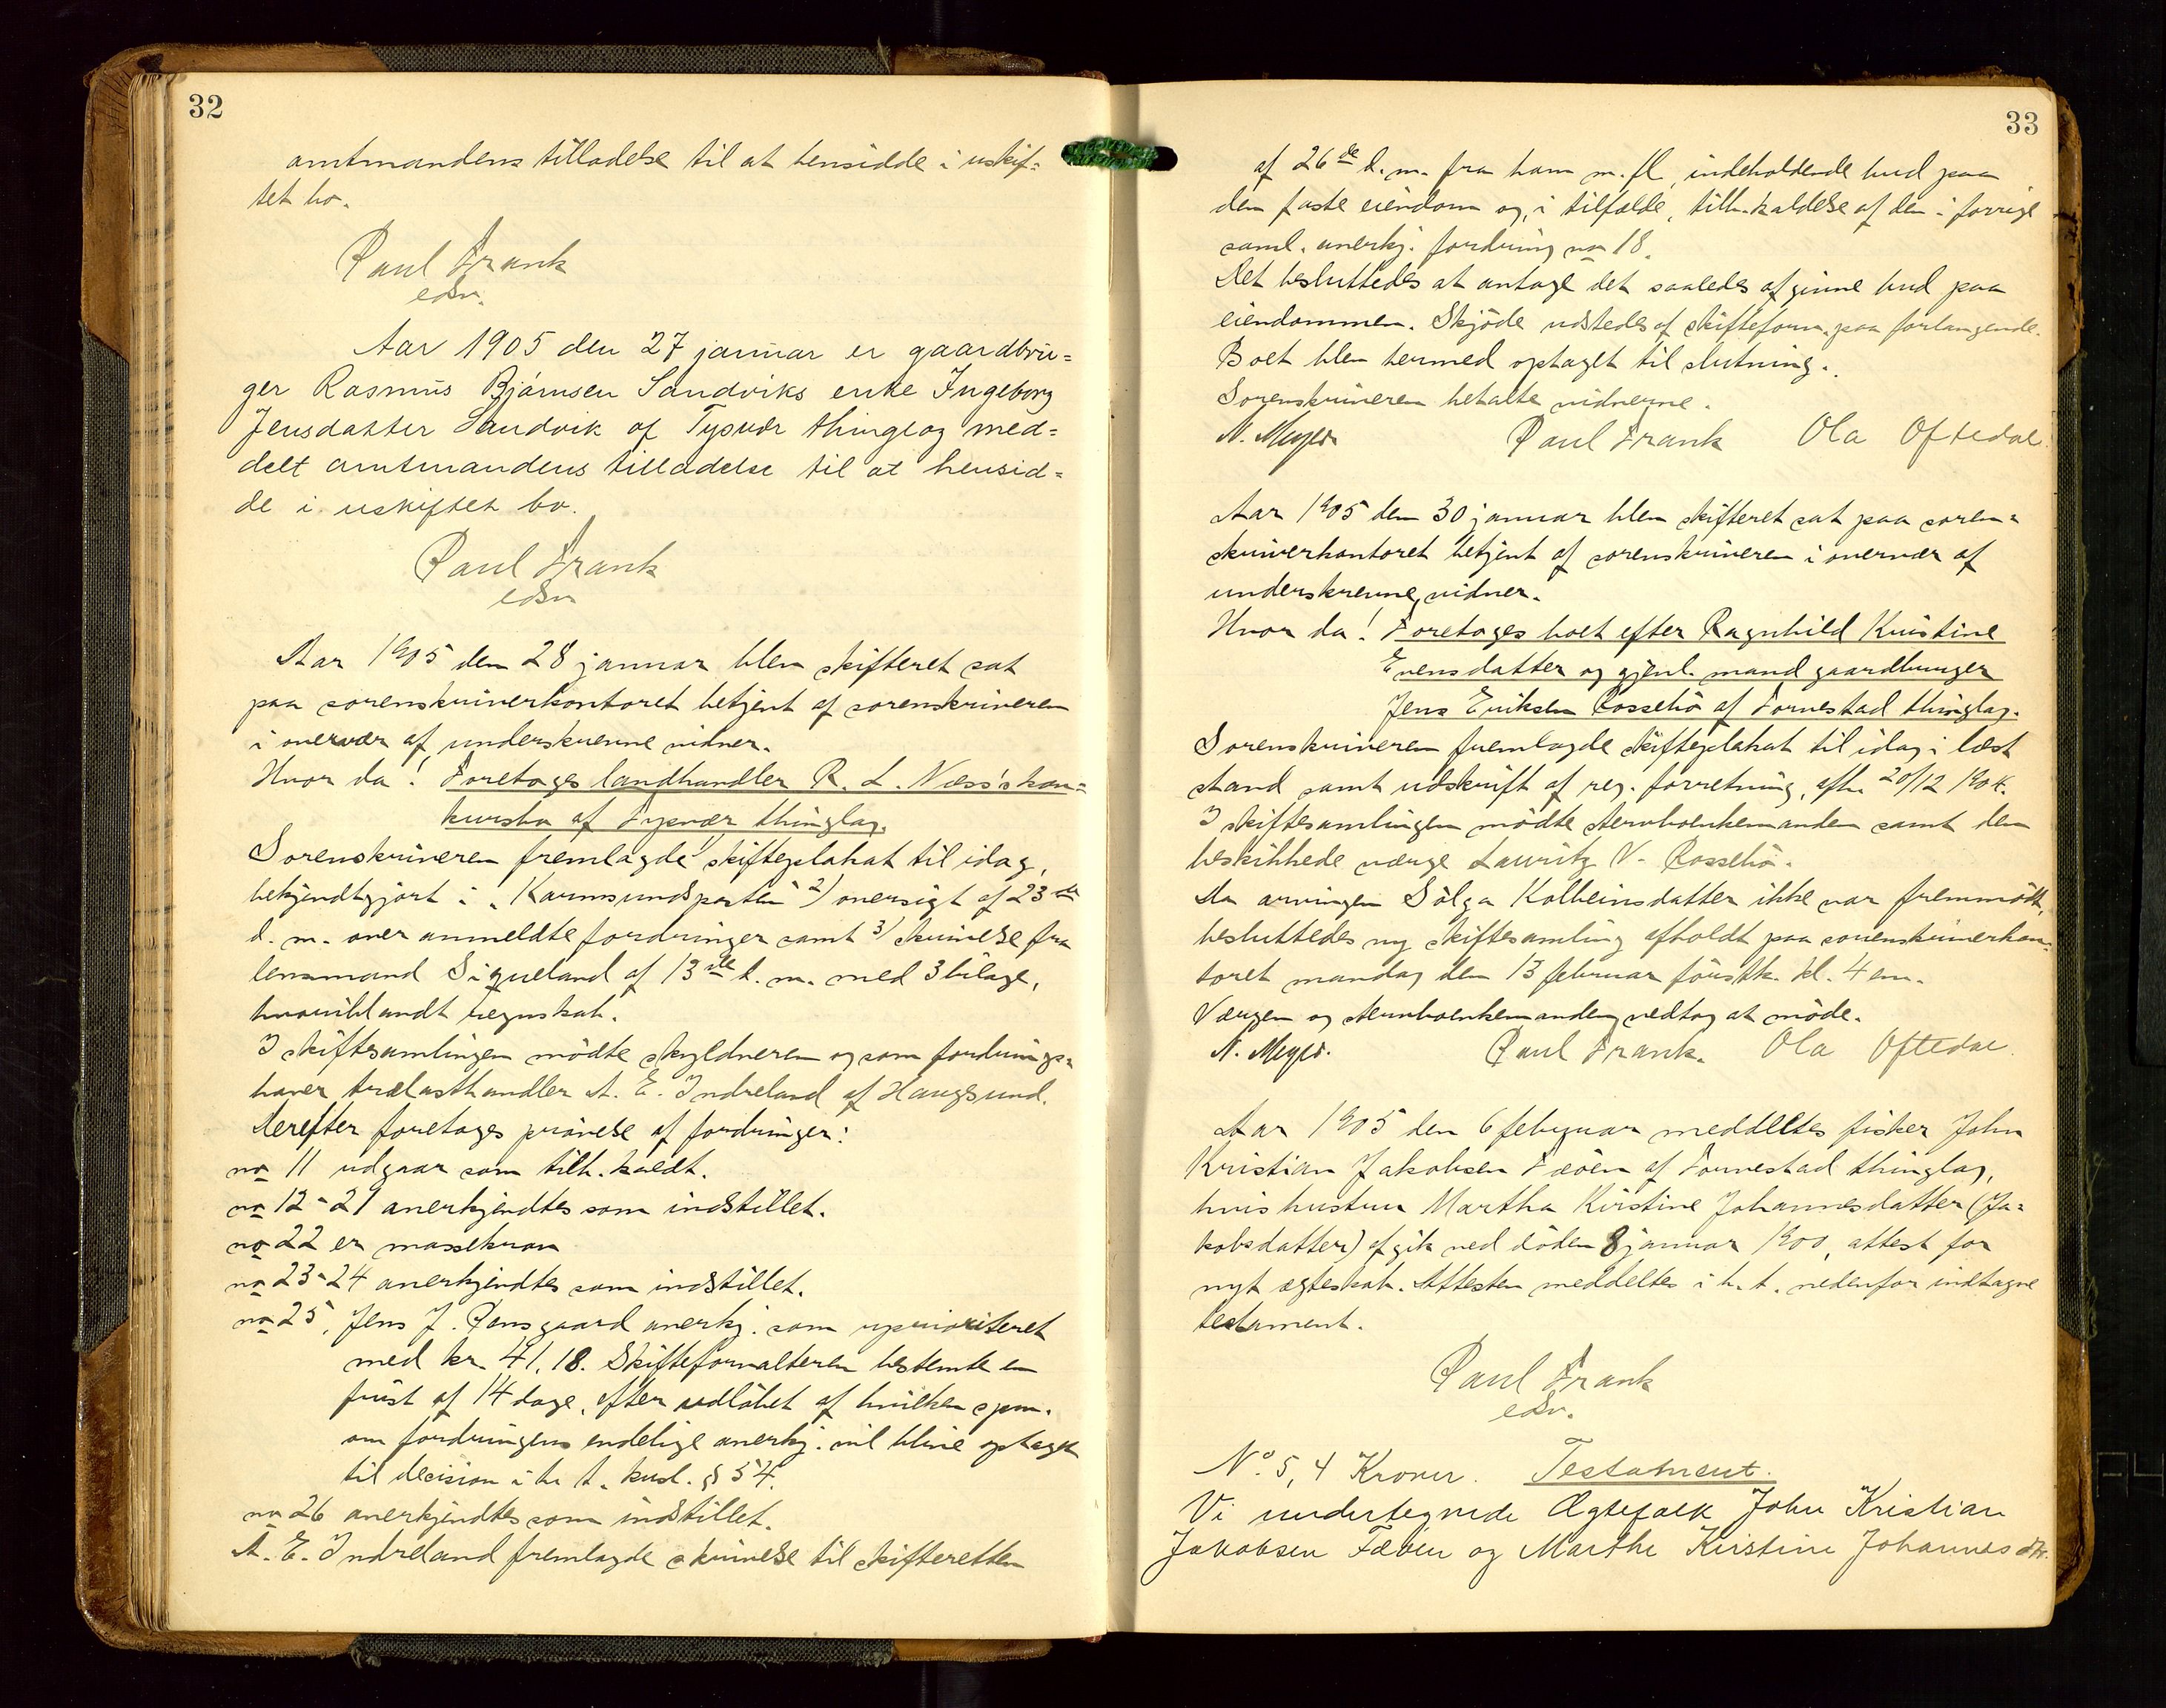 32
amtmandens tilladelse til at hensidde i uskif-
tet bo.
Paul Frank
edsv.
Aar 1905 den 27 januar er gaardbru-
ger Rasmus Bjørnsen Sandviks enke Ingeborg
Jensdatter Sandvik af Tysvær thinglag med-
delt amtmandens tilladelse til at hensid-
de i uskiftet bo.
Paul Frank
edsv
Aar 1905 den 28 januar blev skifteret sat
paa sorenskriverkontoret betjent af sorenskriveren
i overvær af underskrevne vidner.
Hvor da! Foretoges landhandler R. L. Næss's kon-
kursbo af Tysvær thinglag.
Sorenskriveren fremlagde 1) skifteplakat til idag,
bekjendtgjort i "Karmsundsposten" 2) oversigt af 23de
d. m. over anmeldte fordringer samt 3) skrivelse fra
lensmand Siqveland af 13de d. m. med 3 bilage,
hvoriblandt regnskab.
I skiftesamlingen mødte skyldneren og som fordrings-
haver trælasthandler A. E. Indreland af Haugesund.
Derefter foretoges prøvelse af fordringer:
no 11 udgaar som tilb. kaldt.
no 12-21 anerkjendtes som indstillet.
no 22 er massekrav
no 23-24 anerkjendtes som indstillet.
no 25, Jens J. Øensgaard anerkj. som uprioriteret
med kr. 41.18. Skifteforvalteren bestemte en
frist af 14 dage, efter udløbet af hvilken spm.
om fordringens endelige anerkj. vil blive optaget
til decision i h. t. kusl. § 54.
no 26 anerkjendtes som indstillet.
A. E. Indreland fremlagde skrivelse til skifteretten
33
af 26de d. m. fra ham m. fl. indeholdende bud paa
den faste eiendom og, i tilfælde, tilb.kaldelse af den i forrige
saml. anerkj. fordring no 18.
Det besluttedes at antage det saaledes afgivne bud paa
eiendommen. Skjøde udstedes af skifteforv. paa forlangende.
Boet blev hermed optaget til slutning.
Sorenskriveren betalte vidnerne.
N. Meyer Paul Frank Ola Oftedal
Aar 1905 den 30 januar blev skifteret sat paa soren-
skriverkontoret betjent af sorenskriveren i overvær af
underskrevne vidner.
Hvor da! Foretoges boet efter Ragnhild Kristine
Evensdatter og gjenl. mand gaardbruger
Jens Eriksen Rossebø af Torvestad thinglag.
Sorenskriveren fremlagde skifteplakat til idag i læst
stand samt udskrift af reg. forretning, afh. 20/12 1904.
I skiftesamlingen mødte sterbboenkemanden samt den
beskikkede værge Lauritz V. Rossebø.
Da arvingen Sølga Kolbeinsdatter ikke var fremmødt,
besluttedes ny skiftesamling afholdt paa sorenskriverkon-
toret mandag den 13 februar førstk. kl. 4 em.
Værgen og sterbboenkemanden vedtog at møde.
N. Meyer. Paul Frank. Ola Oftedal.
Aar 1905 den 6 februar meddeltes fisker John
Kristian Jakobsen Fæøen af Torvestad thinglag,
hvis hustru Martha Kirstine Johannesdatter (Ja-
kobsdatter) afgik ved døden 8 januar 1900, attest for
nyt ægteskab. Attesten meddeltes i h. t. nedenfor indtagne
testament.
Paul Frank
edsv.
No. 5, 4 Kroner. Testament.
Vi undertegnede Ægtefolk John Kristian
Jakobsen Fæøen og Marthe Kirstine Johannesdtr.